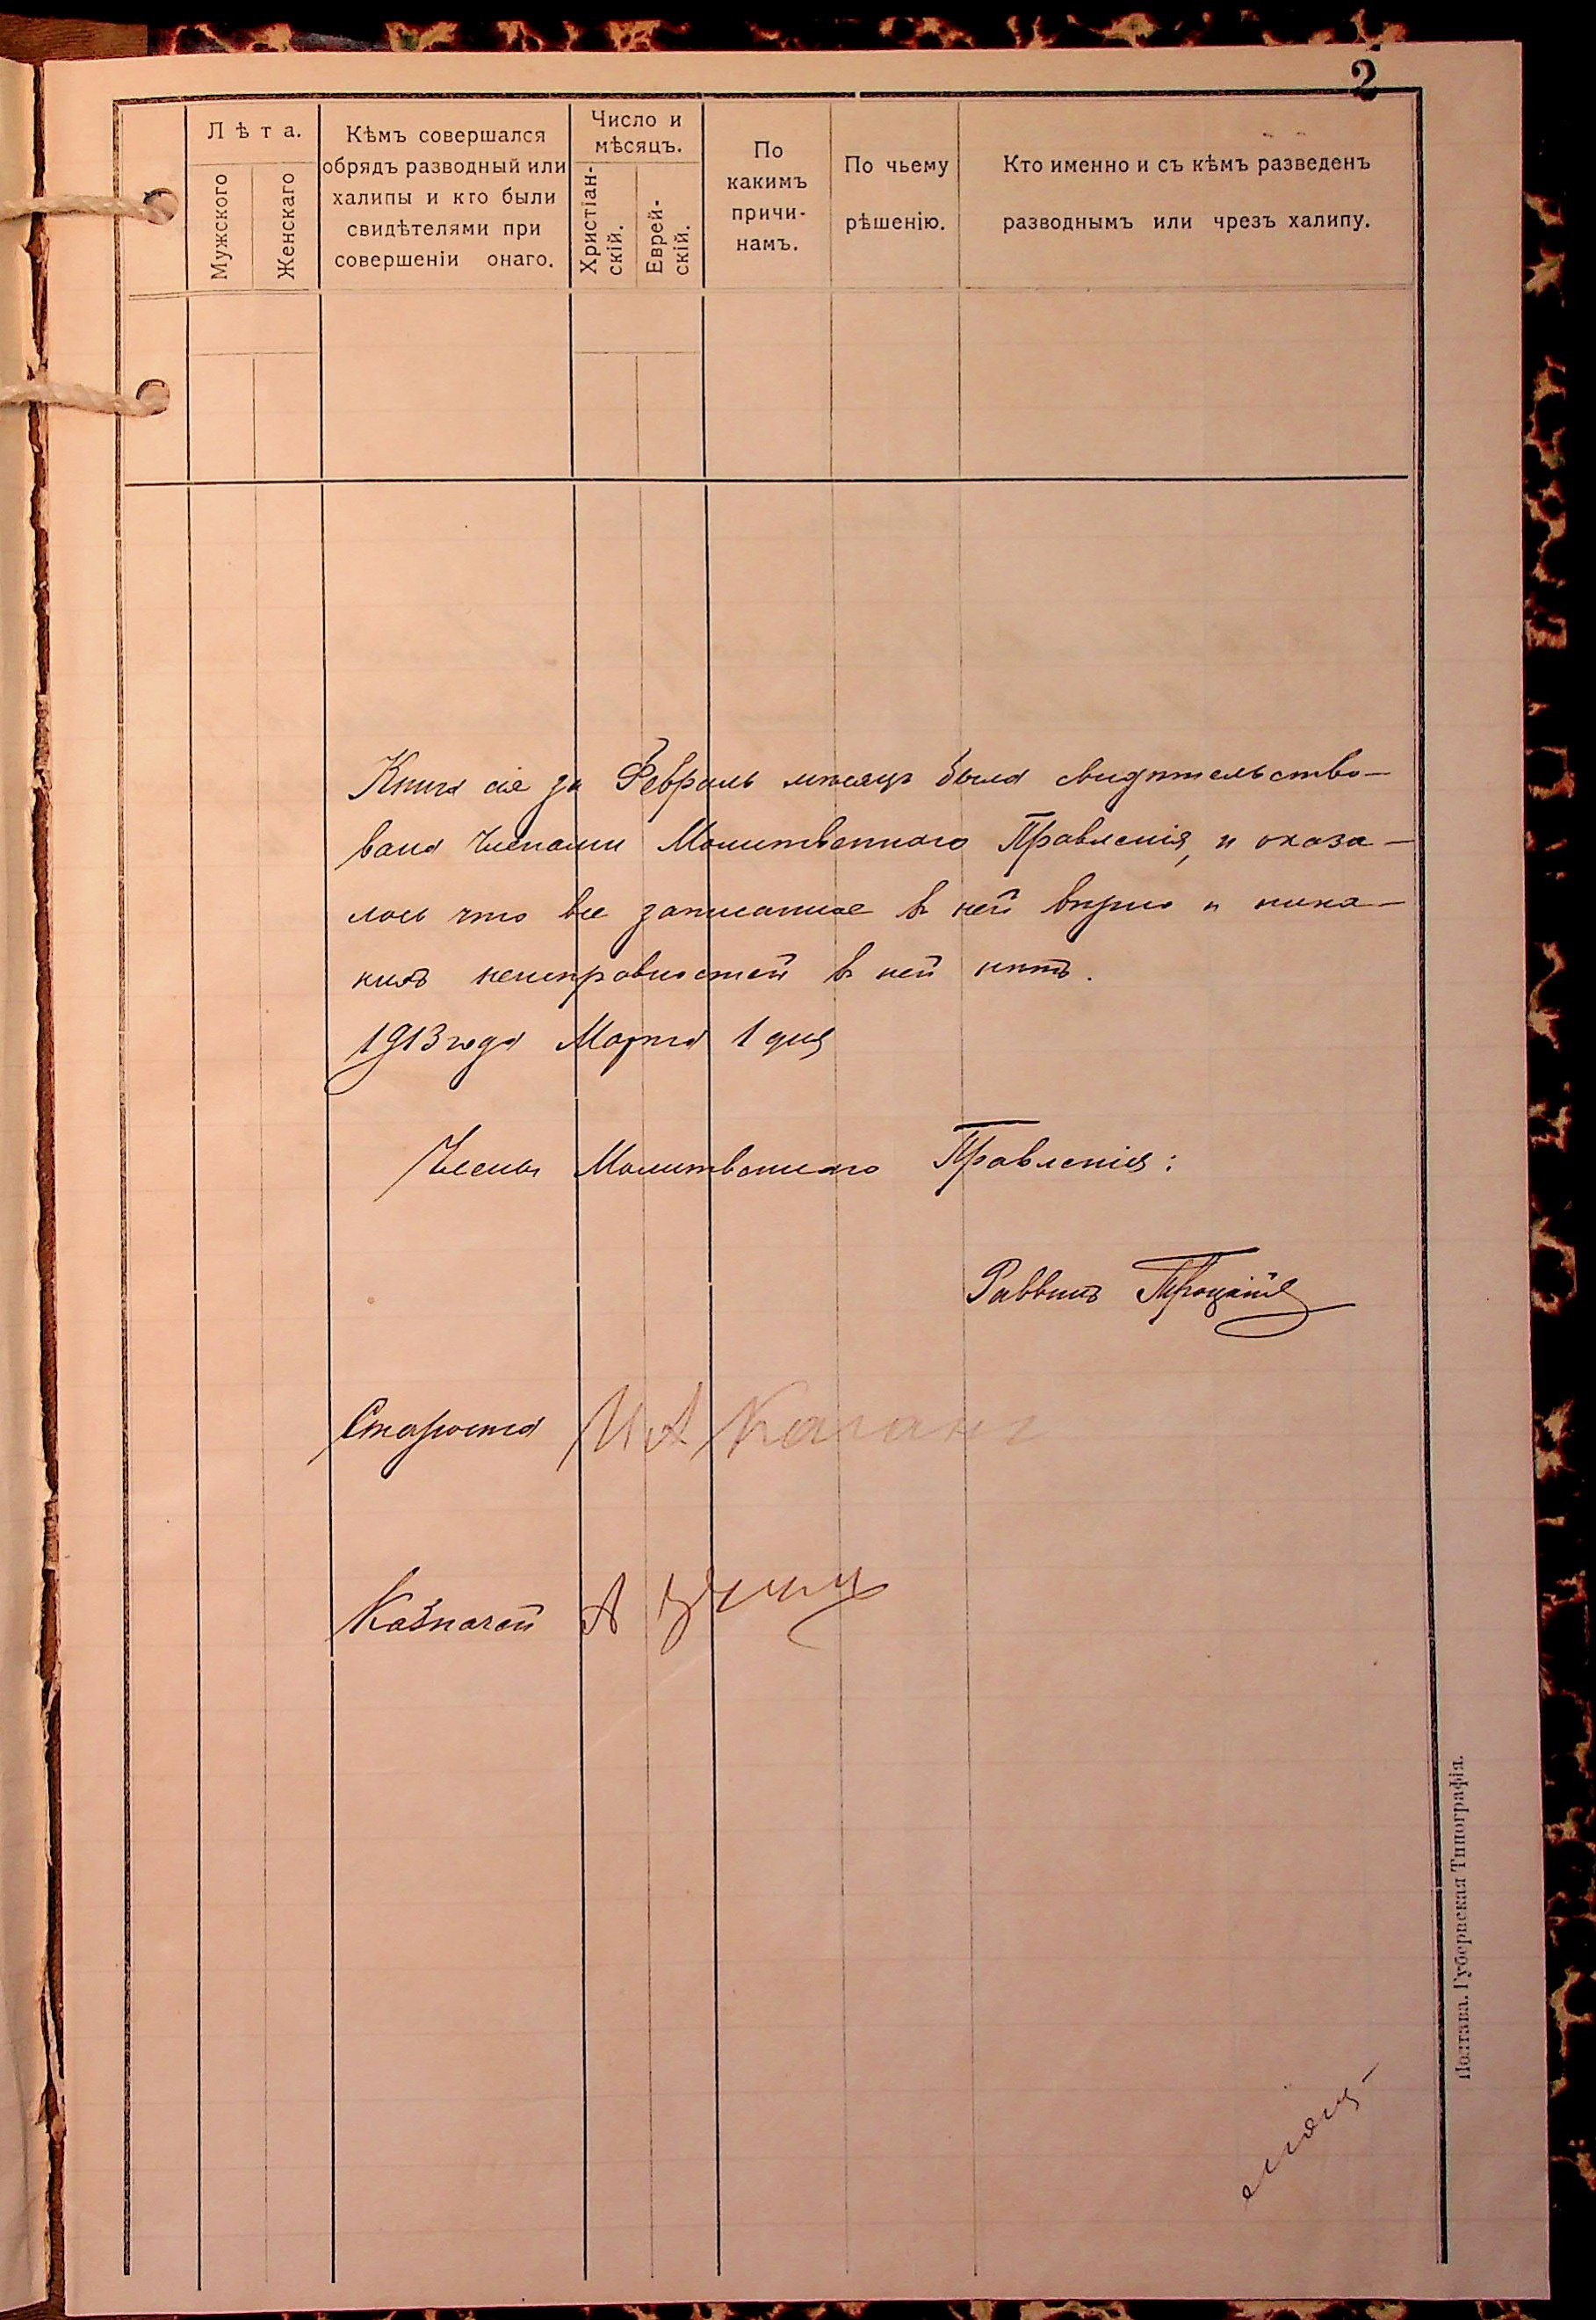 2
Лѣта.
Мужского
Женскаго
Кѣмъ совершался
обрядъ разводный или
халипы и кто были
свидѣтелями при
совершеніи онаго.
Число и
мѣсяцъ.
Христіан-
скій.
Еврей-
скій.
По
какимъ
причи-
намъ.
По чьему
рѣшенію.
Кто именно и съ кѣмъ разведенъ
разводнымъ или чрезъ халипу.
Книга сія за Февраль мѣсяцъ была свидѣтельство-
вана членами Молитвеннаго Правленія, и оказа-
лось что все записанное въ ней вѣрно и ника-
кихъ неисправностей въ ней нѣтъ.
1913 года Марта 1 дня
Члены Молитвеннаго Правленія:
Раввинъ Троцкій
Староста И А Каганъ
Казначей А
Полтава. Губернская Типографія.